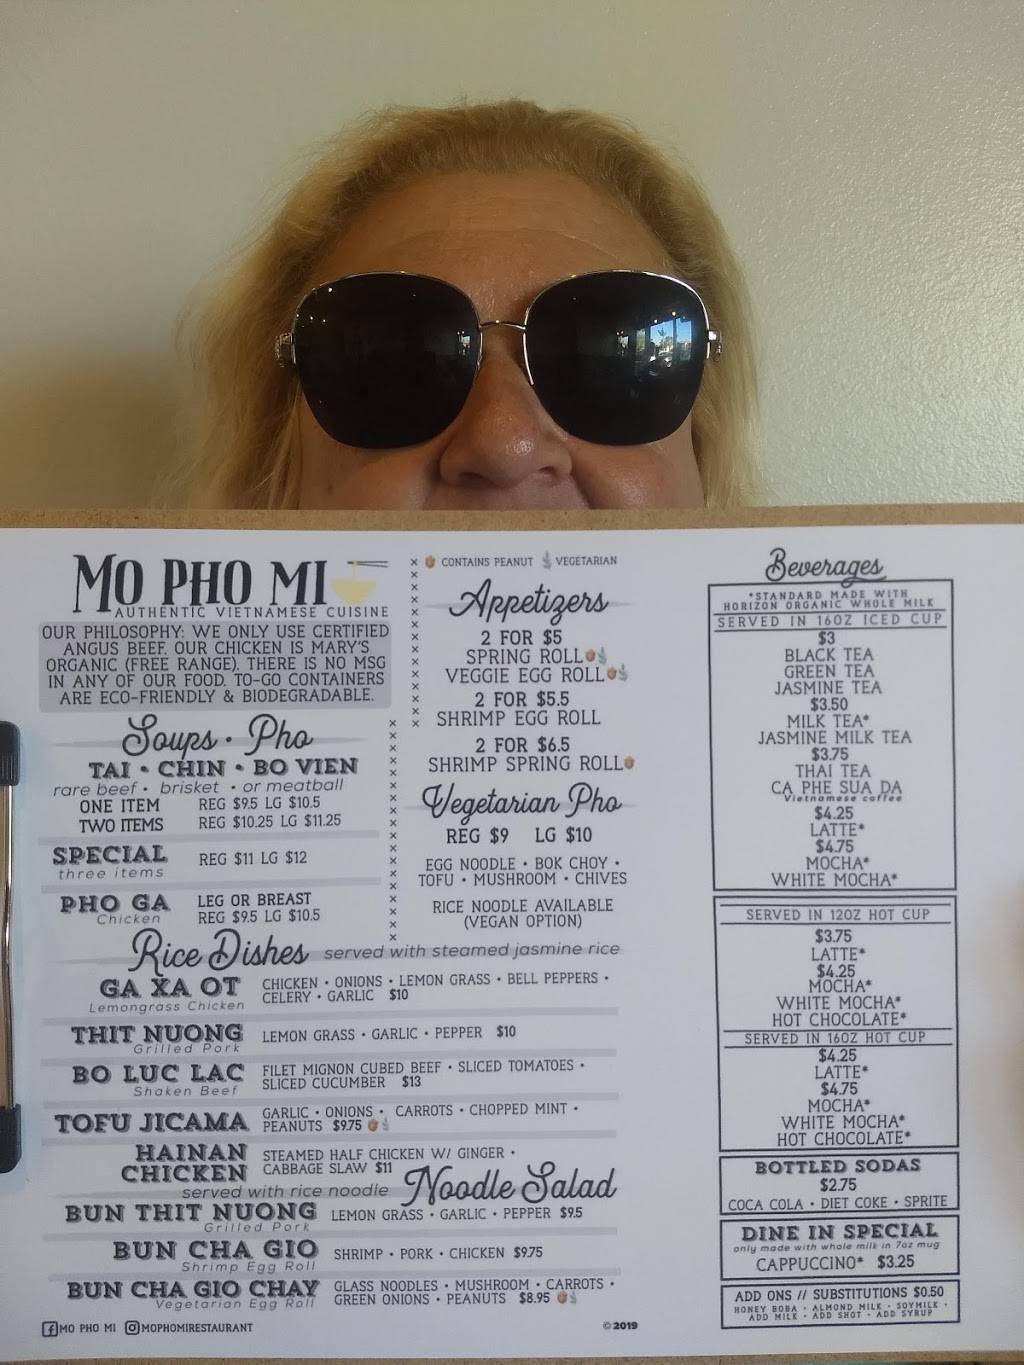 MO PHO MI
AUTHENTIC VIETNAMESE CUISINE
OUR PHILOSOPHY: WE ONLY USE CERTIFIED
ANGUS BEEF. OUR CHICKEN IS MARY'S
ORGANIC (FREE RANGE). THERE IS NO MSG
IN ANY OF OUR FOOD. TO-GO CONTAINERS
ARE ECO-FRIENDLY & BIODEGRADABLE.
Soups • Pho
TAI • CHIN • BO VIEN
rare beef • brisket • or meatball
ONE ITEM REG $9.5 LG $10.5
TWO ITEMS REG $10.25 LG $11.25
SPECIAL REG $11 LG $12
three items
PHO GA LEG OR BREAST
Chicken REG $9.5 LG $10.5
CONTAINS PEANUT VEGETARIAN
Appetizers
2 FOR $5
SPRING ROLL
VEGGIE EGG ROLL
2 FOR $5.5
SHRIMP EGG ROLL
2 FOR $6.5
SHRIMP SPRING ROLL
Vegetarian Pho
REG $9 LG $10
EGG NOODLE • BOK CHOY •
TOFU • MUSHROOM • CHIVES
RICE NOODLE AVAILABLE
(VEGAN OPTION)
Rice Dishes served with steamed jasmine rice
GA XA OT CHICKEN • ONIONS • LEMON GRASS • BELL PEPPERS •
Lemongrass Chicken CELERY • GARLIC $10
THIT NUONG LEMON GRASS • GARLIC • PEPPER $10
Grilled Pork
BO LUC LAC FILET MIGNON CUBED BEEF • SLICED TOMATOES •
Shaken Beef SLICED CUCUMBER $13
TOFU JICAMA GARLIC • ONIONS • CARROTS • CHOPPED MINT •
PEANUTS $9.75
HAINAN STEAMED HALF CHICKEN W/ GINGER •
CHICKEN CABBAGE SLAW $11
served with rice noodle Noodle Salad
BUN THIT NUONG LEMON GRASS • GARLIC • PEPPER $9.5
Grilled Pork
BUN CHA GIO SHRIMP • PORK • CHICKEN $9.75
Shrimp Egg Roll
BUN CHA GIO CHAY GLASS NOODLES • MUSHROOM • CARROTS •
Vegetarian Egg Roll GREEN ONIONS • PEANUTS $8.95
MO PHO MI MOPHOMIRESTAURANT
© 2019
Beverages
*STANDARD MADE WITH
HORIZON ORGANIC WHOLE MILK
SERVED IN 16OZ ICED CUP
$3
BLACK TEA
GREEN TEA
JASMINE TEA
$3.50
MILK TEA*
JASMINE MILK TEA
$3.75
THAI TEA
CA PHE SUA DA
Vietnamese coffee
$4.25
LATTE*
$4.75
MOCHA*
WHITE MOCHA*
SERVED IN 12OZ HOT CUP
$3.75
LATTE*
$4.25
MOCHA*
WHITE MOCHA*
HOT CHOCOLATE*
SERVED IN 16OZ HOT CUP
$4.25
LATTE*
$4.75
MOCHA*
WHITE MOCHA*
HOT CHOCOLATE*
BOTTLED SODAS
$2.75
COCA COLA • DIET COKE • SPRITE
DINE IN SPECIAL
only made with whole milk in 7oz mug
CAPPUCCINO* $3.25
ADD ONS // SUBSTITUTIONS $0.50
HONEY BOBA • ALMOND MILK • SOYMILK •
ADD MILK • ADD SHOT • ADD SYRUP